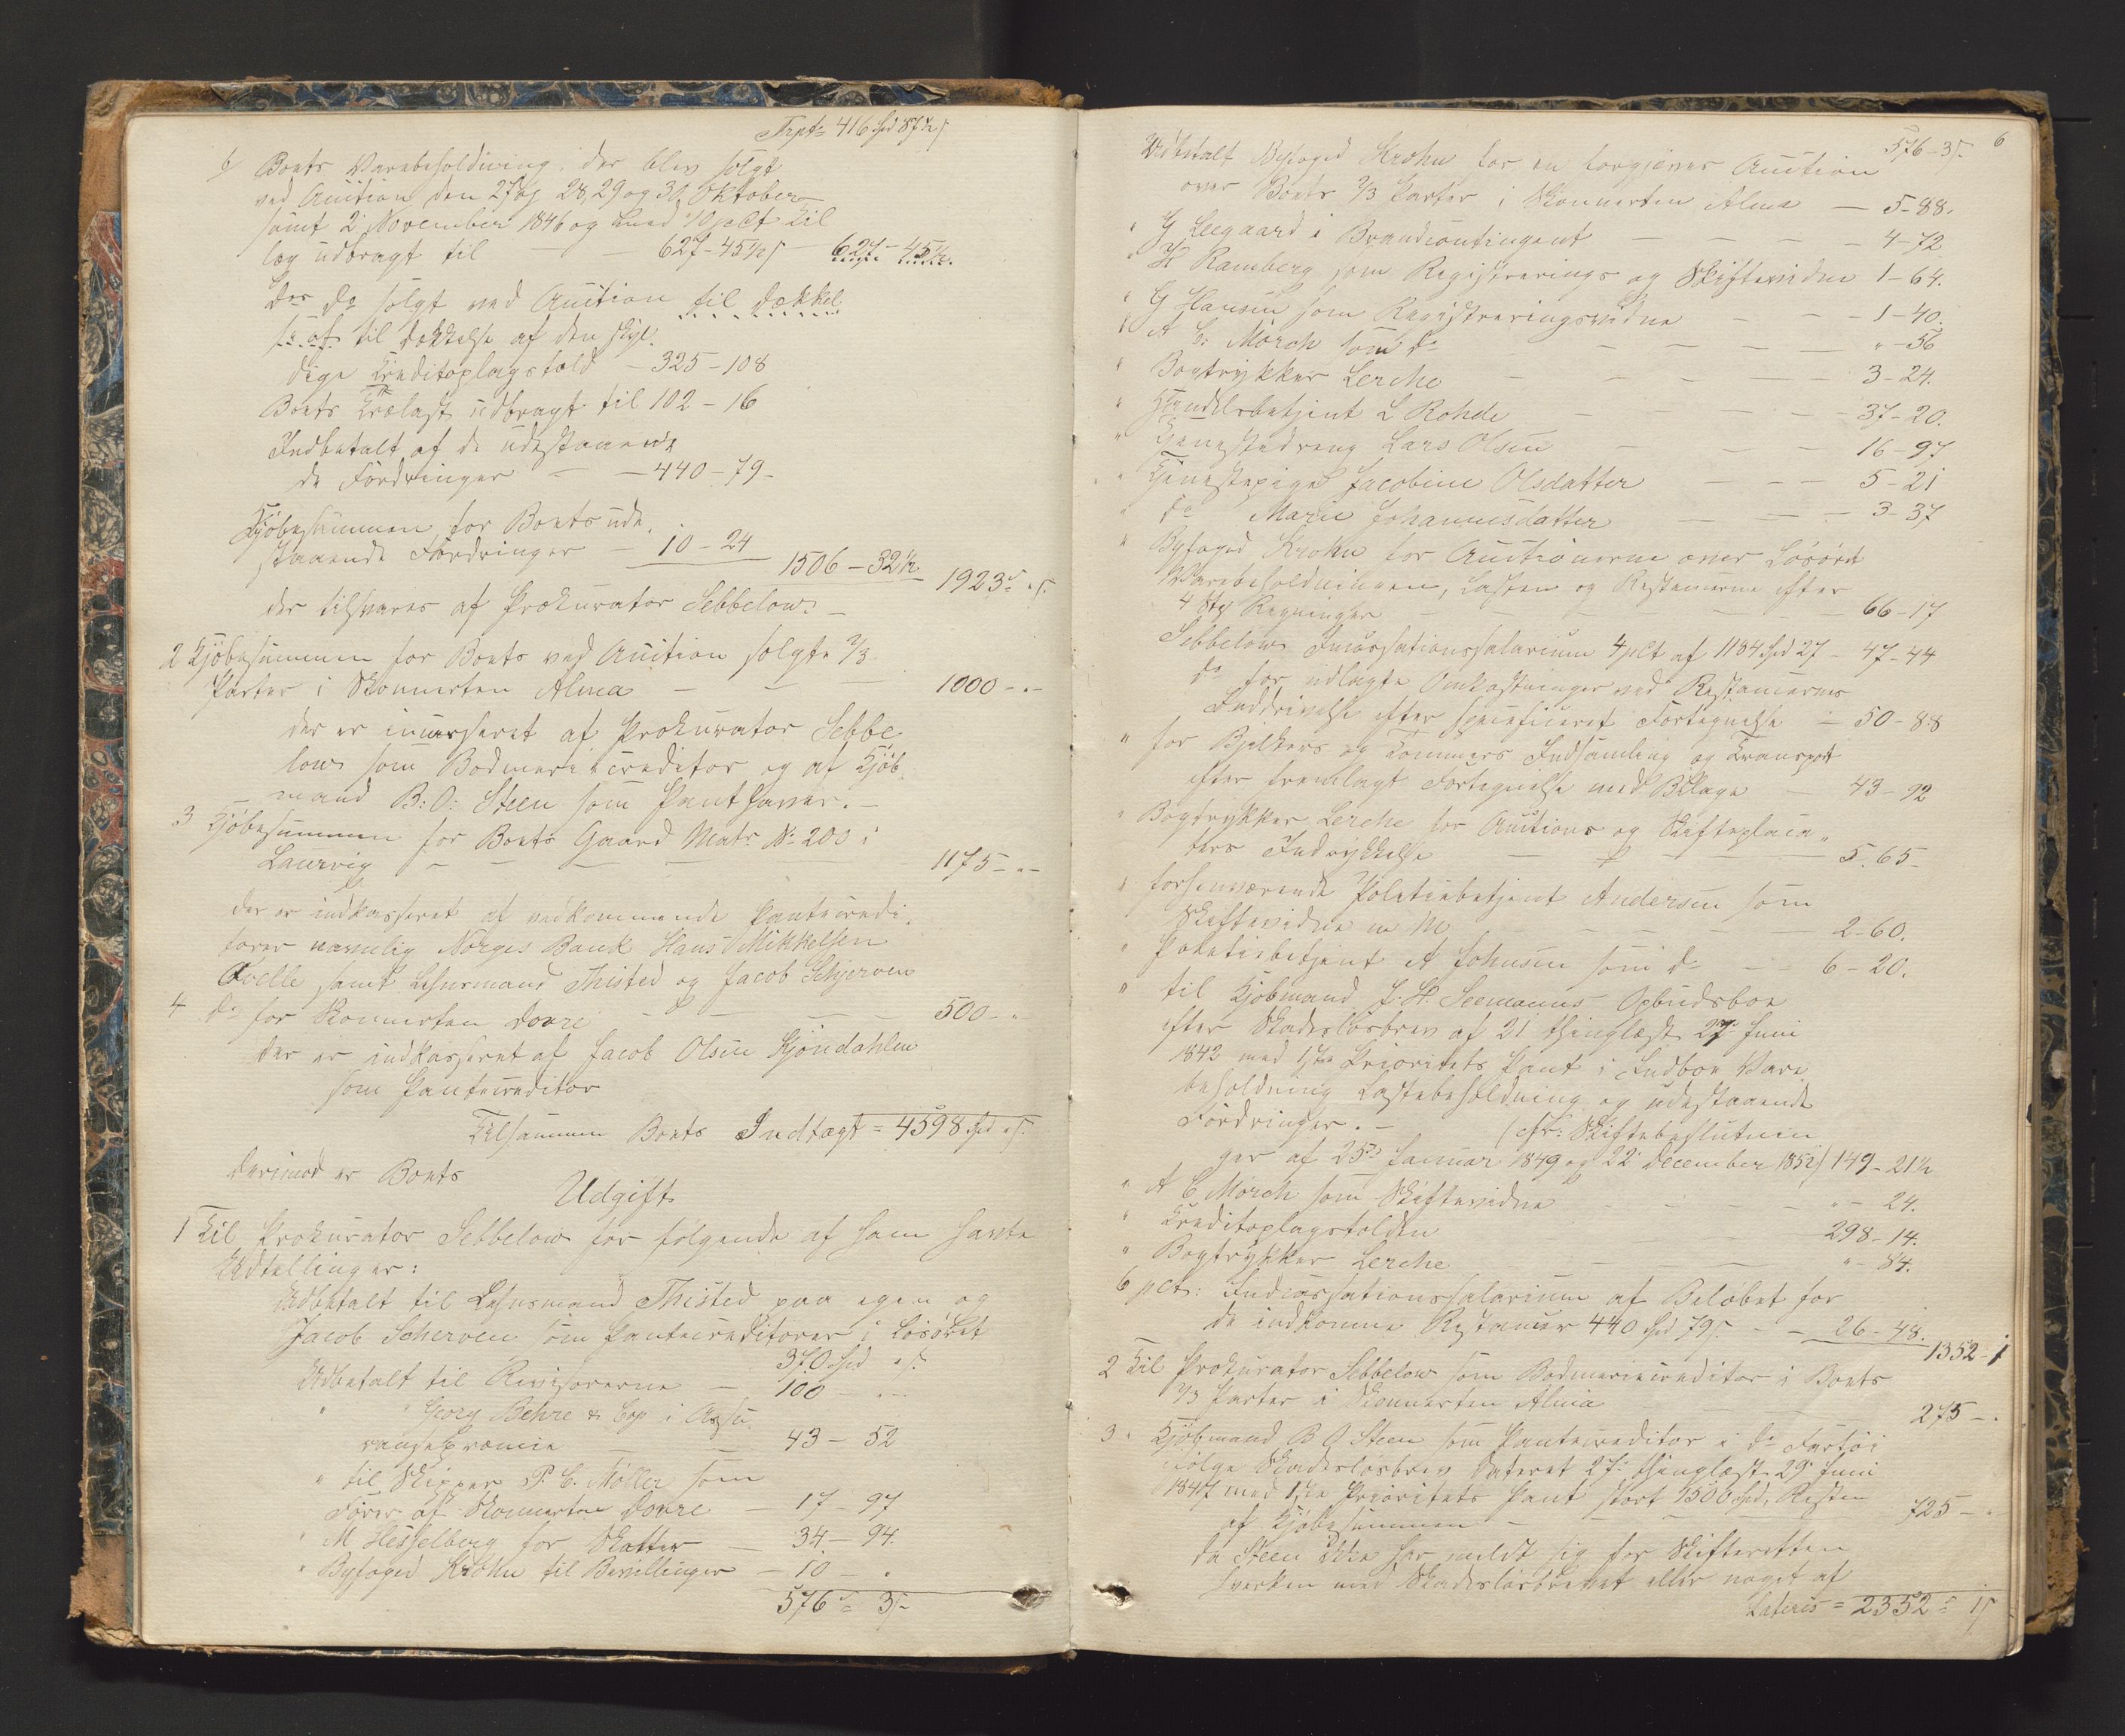 Trpt = 416 Spd 87½ s
b/ Boets Varebeholdning, der blev solgt
ved Auction den 27de, 28, 29 og 31 Oktober
samt 2 November 1846 og med 10 pCt Til
læg udbragt til — — 627-45½ s 627-45½.
Der do solgt ved Auction til dækkel
se af til dækkelse af den skyl.
dige Creditoplagstold — 325-108
Boets Trælast udbragt til 102-16
Indbetalt af de udestaaende
de Fordringer — — 440-79-
Kjöbesummen for Boets ude.
staaende Fordringer — 10-24 1506-32½ 1923 " s.
der tilsvares af Prokurator Sebbelow. —
2 Kjöbesummen for Boets ved Auction solgte ⅔
Parter i Skonnerten Alma — — — 1000-"-
der er incasseret af Prokurator Sebbe
low som Bodmericreditor og af Kjöb
mand B: O: Steen som Panthaver. —
3 Kjöbesummen for Boets Gaard Matr No 200 i
Laurvig — — — — 1175-"-
der er indkasseret af vedkommende Pantecredi.
torer navnlig Norges Bank Hans Mikkelsen
Tvelle samt Lehnsmand Thisted og Jacob Schjerven
4 do for Skonnerten Dovre — — — 500-"
der er indkasseret af Jacob Olsen Gjöndahlen
som Pantecreditor
Tilsammen Boets Indtægt = 4598 Spd " s.
Derimod er Boets
Udgift
1 Til Prokurator Sebbelow for følgende af ham havte
Udtellinger:
Udbetalt til Lehnsmand Thisted paa egen og
Jacob Scherven som Pantecreditorer i Lösöret
370 Spd " s.
Udbetalt til Revisorerne — 100 - " -
" " Georg Behre & Cop i Assu
rancepræmie — — 43-52
" til Skipper P. C. Möller som
Förer af Skonnerten Dovre — 17-97
" M Hesselberg for Skatter — 34-94.
" Byfoged Krohn til Bevillinger — 10-"
576 = 3 s
576-3 s. 6
Udbetalt Byfoged Krohn for en forgjæves Auction
over Boets ⅔ Parter i Skonnerten Alma — 5-88.
" G Leegaard i Brandcontingent — — — 4-72
" H Ramberg som Registrerings og Skiftevidne 1-64.
" G Hansen som Registreringsvidne — — 1-40.
" A C. Mörch som do — — — "-56
" Bogtrykker Lerche — — — 3-24.
" Handelsbetjent L Rohde — — — 37-20.
" Tjenestedreng Lars Olsen — — — 16-97
" Tjenestepige Jacobine Olsdatter — — — 5-21
" do Marie Johannesdatter — — — 3-37
" Byfoged Krohn for Auctionerne over Lösöre
Varebeholdningen, Lasten og Restancerne efter
4 Stk Regninger — — — 66-17
Sebbelows Incassationssalarium 4 pCt af 1184 Spd 27 — 47-44
do for udlagte Omkostninger ved Restancernes
Inddrivelse efter specificeret Fortegnelse — 50-88
" for Bjelkers og Tömmers Indsamling og Transport
efter fremlagt Fortegnelse med Bilage — 43-92
" Bogtrykker Lerche for Auctions og Skifteplaca
ters Indrykkelse — — — 5.65-
" forhenværende Politiebetjent Andersen som
Skiftevidne m M — — — 2-60.
" Politiebetjent A Johnsen som do — 6-20.
" til Kjöbmand J. H. Seemanns Opbudsboe
efter Skadeslösbrev af 21 thinglæst 27 Juni
1842 med 1ste Prioritets Pant i Indboe Vare
beholdning Lastebeholdning og udestaaende
Fordringer. — (cfr: Skiftebeslutnin
ger af 25de Januar 1849 og 22 December 1852) 149-21½
" A C Mörch som Skiftevidne — — — "-24.
" Creditoplagstolden — — — 298-14.
" Bogtrykker Lerche — — — "-84.
6 pCt: Indcassationssalarium af Belöbet for
de indkomne Restancer 440 Spd 79 s. — — 26-48.
1352-1
2 Til Prokurator Sebbelow som Bodmericreditor i Boets
⅔ Parter i Skonnerten Alma — — — 275-"
3 " Kjöbmand B O Steen som Pantecreditor i do Fartöi
ifölge Skadeslösbrev dateret 27 thinglæst 29 Juni
1847 med 1ste Prioritets Pant stort 1500 Spd, Resten
af Kjöbesummen — — — 725-"
da Steen ikke har meldt sig for Skifteretten
hverken med Skadeslösbrevet eller noget af
Lateris = 2352 = 1 s